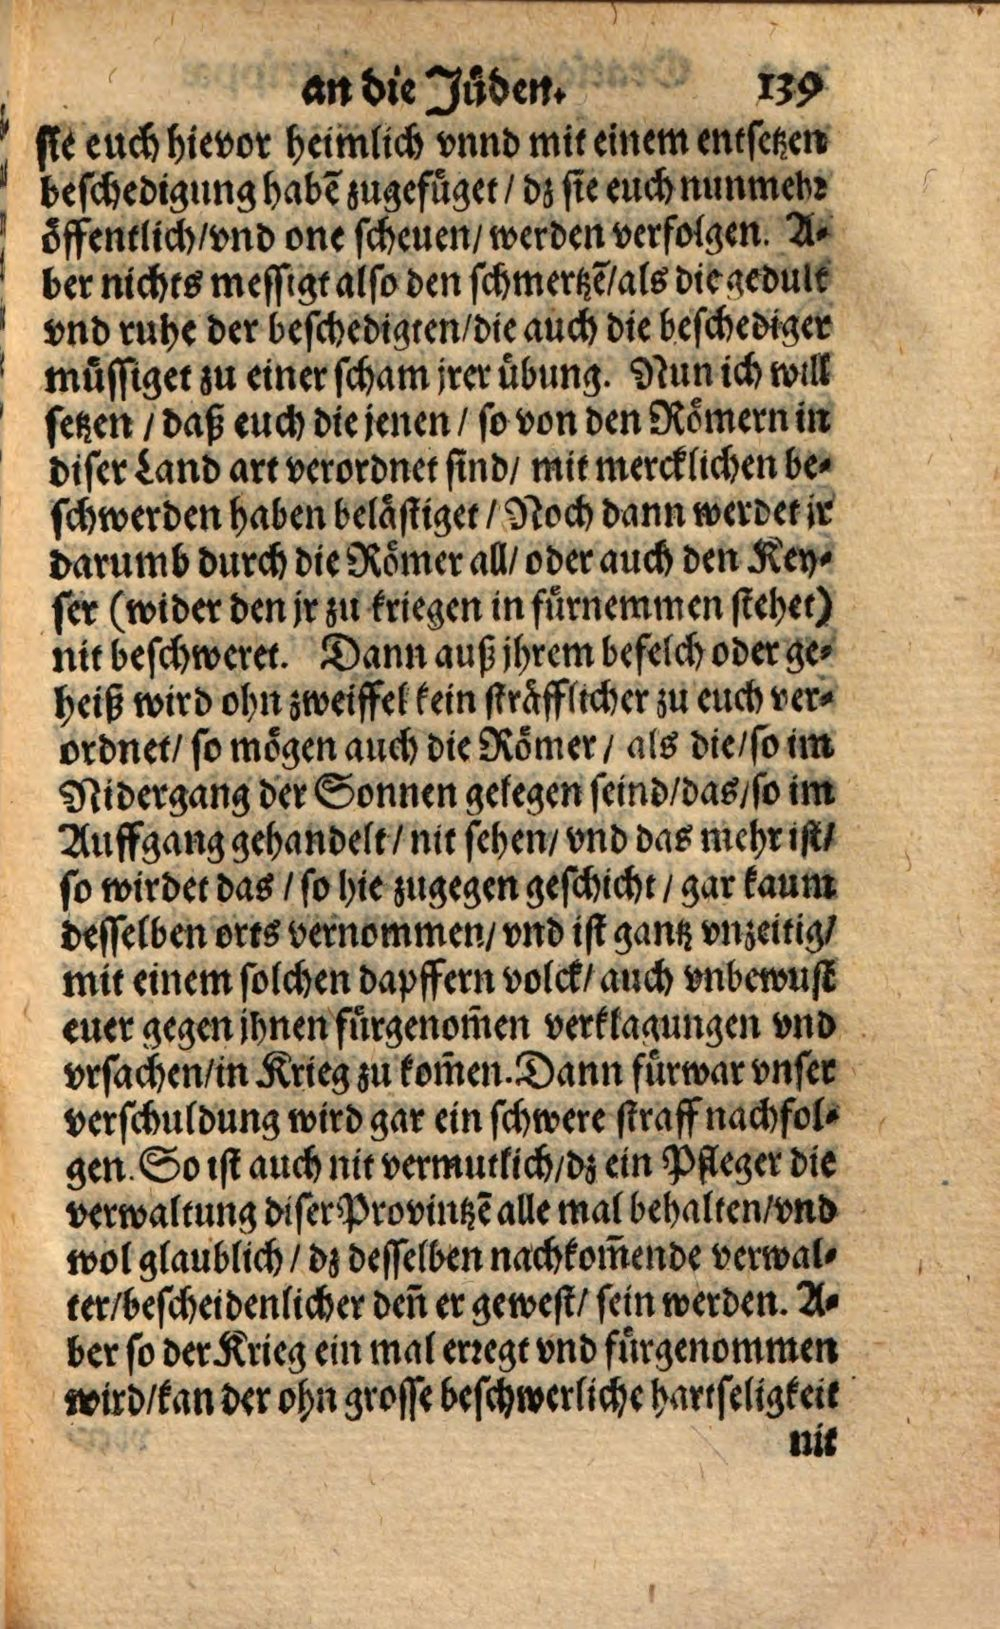 an die Jůden. 139
sie euch hievor heimlich vnnd mit einem entsetzen
beschedigung habẽ zugefůget / dz sie euch nunmehr
öffentlich / vnd one scheuen / werden verfolgen. A-
ber nichts messigt also den schmertzẽ / als die gedult
vnd ruhe der beschedigten / die auch die beschediger
můssiget zu einer scham jrer ůbung. Nun ich will
setzen / daß euch die jenen / so von den Rőmern in
diser Land art verordnet sind / mit mercklichen be-
schwerden haben belåstiget / Noch dann werdet jr
darumb durch die Rőmer all / oder auch den Key-
ser (wider den jr zu kriegen in fůrnemmen stehet)
nit beschweret. Dann auß jhrem befelch oder ge-
heiß wird ohn zweiffel kein stråfflicher zu euch ver-
ordnet / so mőgen auch die Rőmer / als die / so im
Nidergang der Sonnen gelegen seind / das / so im
Auffgang gehandelt / nit sehen / vnd das mehr ist /
so wirdet das / so hie zugegen geschicht / gar kaum
desselben orts vernommen / vnd ist gantz vnzeitig /
mit einem solchen dapffern volck / auch vnbewust
euer gegen jhnen fůrgenom̃en verklagungen vnd
vrsachen / in Krieg zu kom̃en. Dann fůrwar vnser
verschuldung wird gar ein schwere straff nachfol-
gen. So ist auch nit vermutlich / dz ein Pfleger die
verwaltung diser Provintzẽ alle mal behalten / vnd
wol glaublich / dz desselben nachkom̃ende verwal-
ter / bescheidenlicher den̄ er gewest / sein werden. A-
ber so der Krieg ein mal erregt vnd fůrgenommen
wird / kan der ohn grosse beschwerliche hartseligkeit
nit